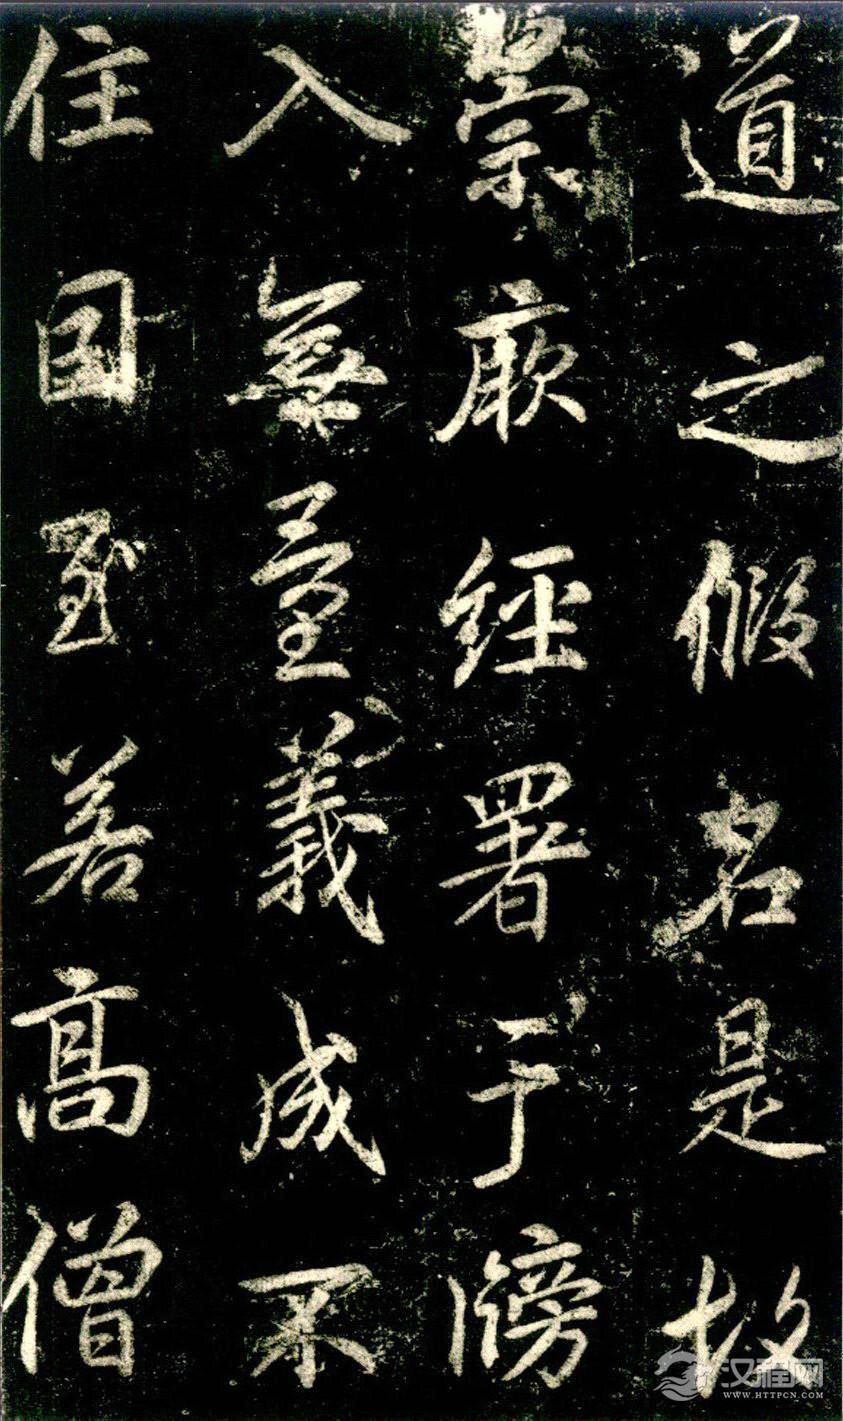 道之假名是故
崇厥經署于牓
入無量義成不
住国若高僧
汉程网
WWW.HTTPCN.COM